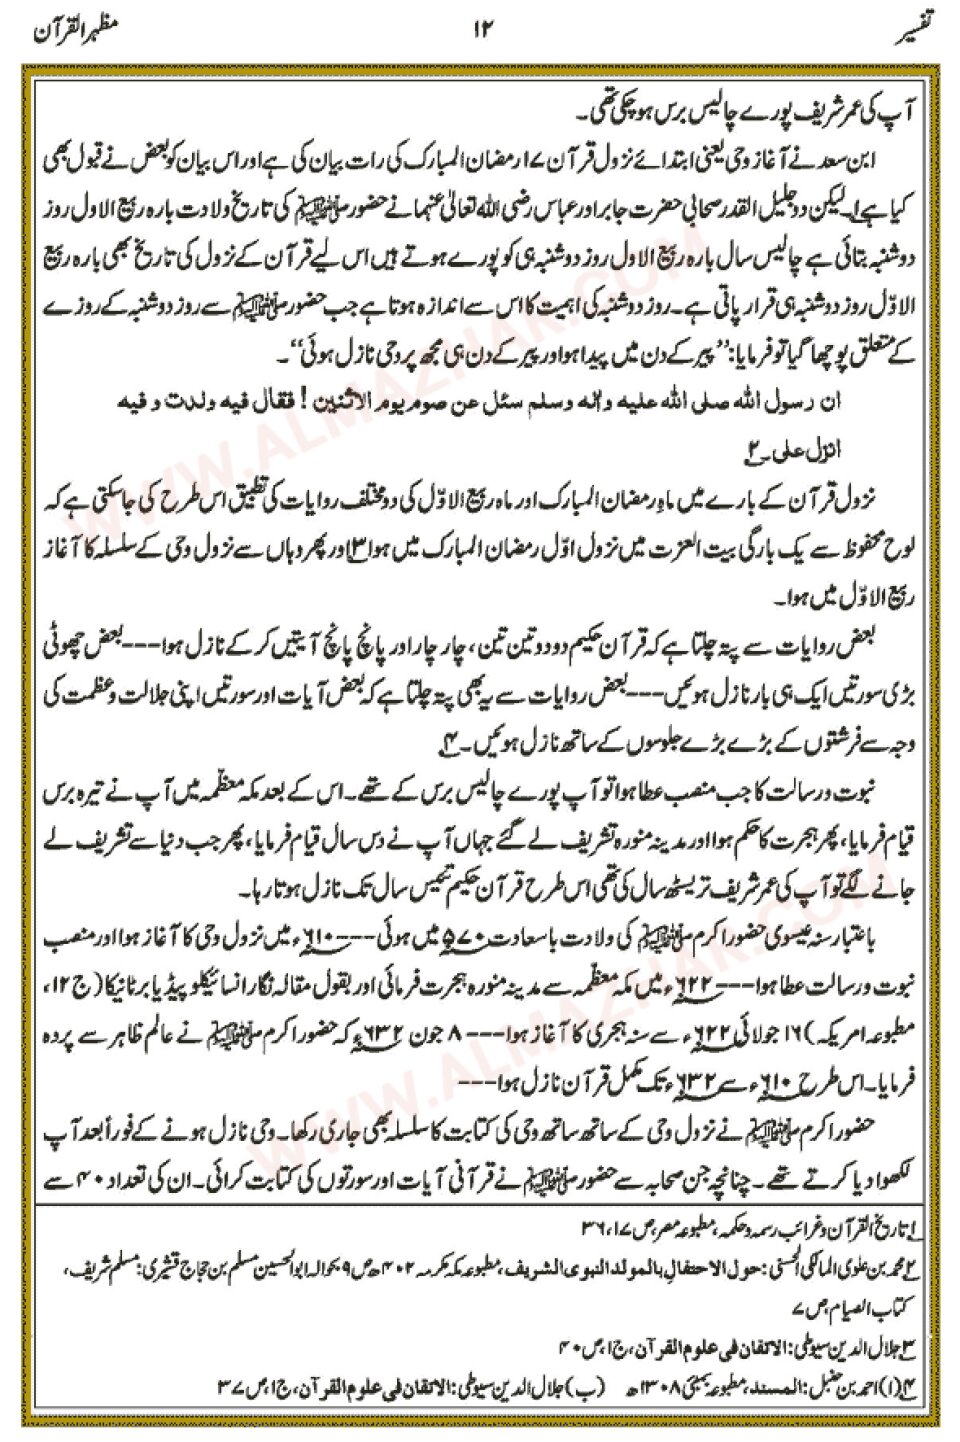 تفسیر ۱۲ مظہر القرآن
آپ کی عمر شریف پورے چالیس برس ہو چکی تھی۔
ابن سعد نے آغاز وحی یعنی ابتدائے نزول قرآن ۱۷ رمضان المبارک کی رات بیان کی ہے اور اس بیان کو بعض نے قبول بھی
کیا ہے۱۔ لیکن دو جلیل القدر صحابی حضرت جابر اور عباس رضی اللہ تعالیٰ عنہما نے حضور ﷺ کی تاریخ ولادت بارہ ربیع الاول روز
دوشنبہ بتائی ہے چالیس سال بارہ ربیع الاول روز دوشنبہ ہی کو پورے ہوتے ہیں اس لیے قرآن کے نزول کی تاریخ بھی بارہ ربیع
الاوّل روز دوشنبہ ہی قرار پاتی ہے۔ روز دوشنبہ کی اہمیت کا اس سے اندازہ ہوتا ہے جب حضور ﷺ سے روز دوشنبہ کے روزے
کے متعلق پوچھا گیا تو فرمایا: ’’پیر کے دن میں پیدا ہوا اور پیر کے دن ہی مجھ پر وحی نازل ہوئی‘‘۔
ان رسول اللہ صلی اللہ علیہ وآلہ وسلم سئل عن صوم یوم الاثنین! فقال فیہ ولدت و فیہ
انزل علی۔۲
نزول قرآن کے بارے میں ماہِ رمضان المبارک اور ماہ ربیع الاوّل کی دو مختلف روایات کی تطبیق اس طرح کی جاسکتی ہے کہ
لوح محفوظ سے یک بارگی بیت العزت میں نزول اوّل رمضان المبارک میں ہوا۳ اور پھر وہاں سے نزول وحی کے سلسلہ کا آغاز
ربیع الاوّل میں ہوا۔
بعض روایات سے پتہ چلتا ہے کہ قرآن حکیم دو دو تین تین، چار چار اور پانچ پانچ آیتیں کر کے نازل ہوا---بعض چھوٹی
بڑی سورتیں ایک ہی بار نازل ہوئیں---بعض روایات سے یہ بھی پتہ چلتا ہے کہ بعض آیات اور سورتیں اپنی جلالت و عظمت کی
وجہ سے فرشتوں کے بڑے بڑے جلوسوں کے ساتھ نازل ہوئیں۔۴
نبوت و رسالت کا جب منصب عطا ہوا تو آپ پورے چالیس برس کے تھے۔ اس کے بعد مکہ معظّمہ میں آپ نے تیرہ برس
قیام فرمایا، پھر ہجرت کا حکم ہوا اور مدینہ منورہ تشریف لے گئے جہاں آپ نے دس سال قیام فرمایا، پھر جب دنیا سے تشریف لے
جانے لگے تو آپ کی عمر شریف تریسٹھ سال کی تھی اس طرح قرآن حکیم تئیس سال تک نازل ہوتا رہا۔
باعتبار سنہ عیسوی حضور اکرم ﷺ کی ولادت باسعادت ۵۷۰ء میں ہوئی---۶۱۰ء میں نزول وحی کا آغاز ہوا اور منصب
نبوت و رسالت عطا ہوا---۶۲۲ء میں مکہ معظّمہ سے مدینہ منورہ ہجرت فرمائی اور بقول مقالہ نگار انسائیکلو پیڈیا برٹانیکا (ج ۱۲،
مطبوعہ امریکہ) ۱۶ جولائی ۶۲۲ء سے سنہ ہجری کا آغاز ہوا---۸ جون ۶۳۲ء کہ حضور اکرم ﷺ نے عالم ظاہر سے پردہ
فرمایا۔ اس طرح ۶۱۰ء سے ۶۳۲ء تک مکمل قرآن نازل ہوا---
حضور اکرم ﷺ نے نزول وحی کے ساتھ ساتھ وحی کی کتابت کا سلسلہ بھی جاری رکھا۔ وحی نازل ہونے کے فوراً بعد آپ
لکھوا دیا کرتے تھے۔ چنانچہ جن صحابہ سے حضور ﷺ نے قرآنی آیات اور سورتوں کی کتابت کرائی۔ ان کی تعداد ۴۰ سے
۱ تاریخ القرآن و غرائب رسمہ و حکمہ، مطبوعہ مصر، ص ۱۷، ۳۶
۲ محمد بن علوی المالکی الحسنی: حول الاحتفال بالمولد النبوی الشریف، مطبوعہ مکہ مکرمہ ۱۴۰۲ھ ص ۹ بحوالہ ابوالحسین مسلم بن حجاج قشیری: مسلم شریف،
کتاب الصیام، ص ۷
۳ جلال الدین سیوطی: الاتقان فی علوم القرآن، ج ۱، ص ۴۰
۴ (ا) احمد بن حنبل: المسند، مطبوعہ بمبئی ۱۳۰۸ھ (ب) جلال الدین سیوطی: الاتقان فی علوم القرآن، ج ۱، ص ۳۷
WWW.ALMAZHAR.COM
WWW.ALMAZHAR.COM